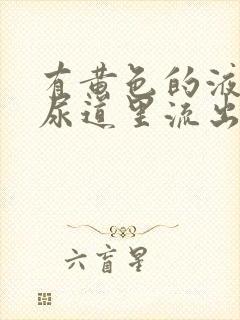 有黄色的液
尿道里流出
六盲星